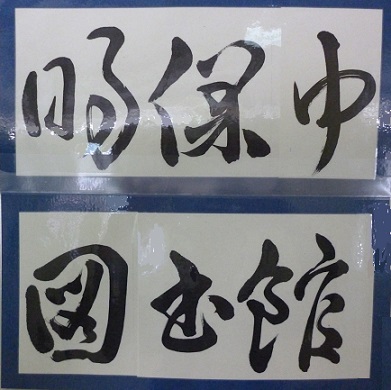 明保中
図書館